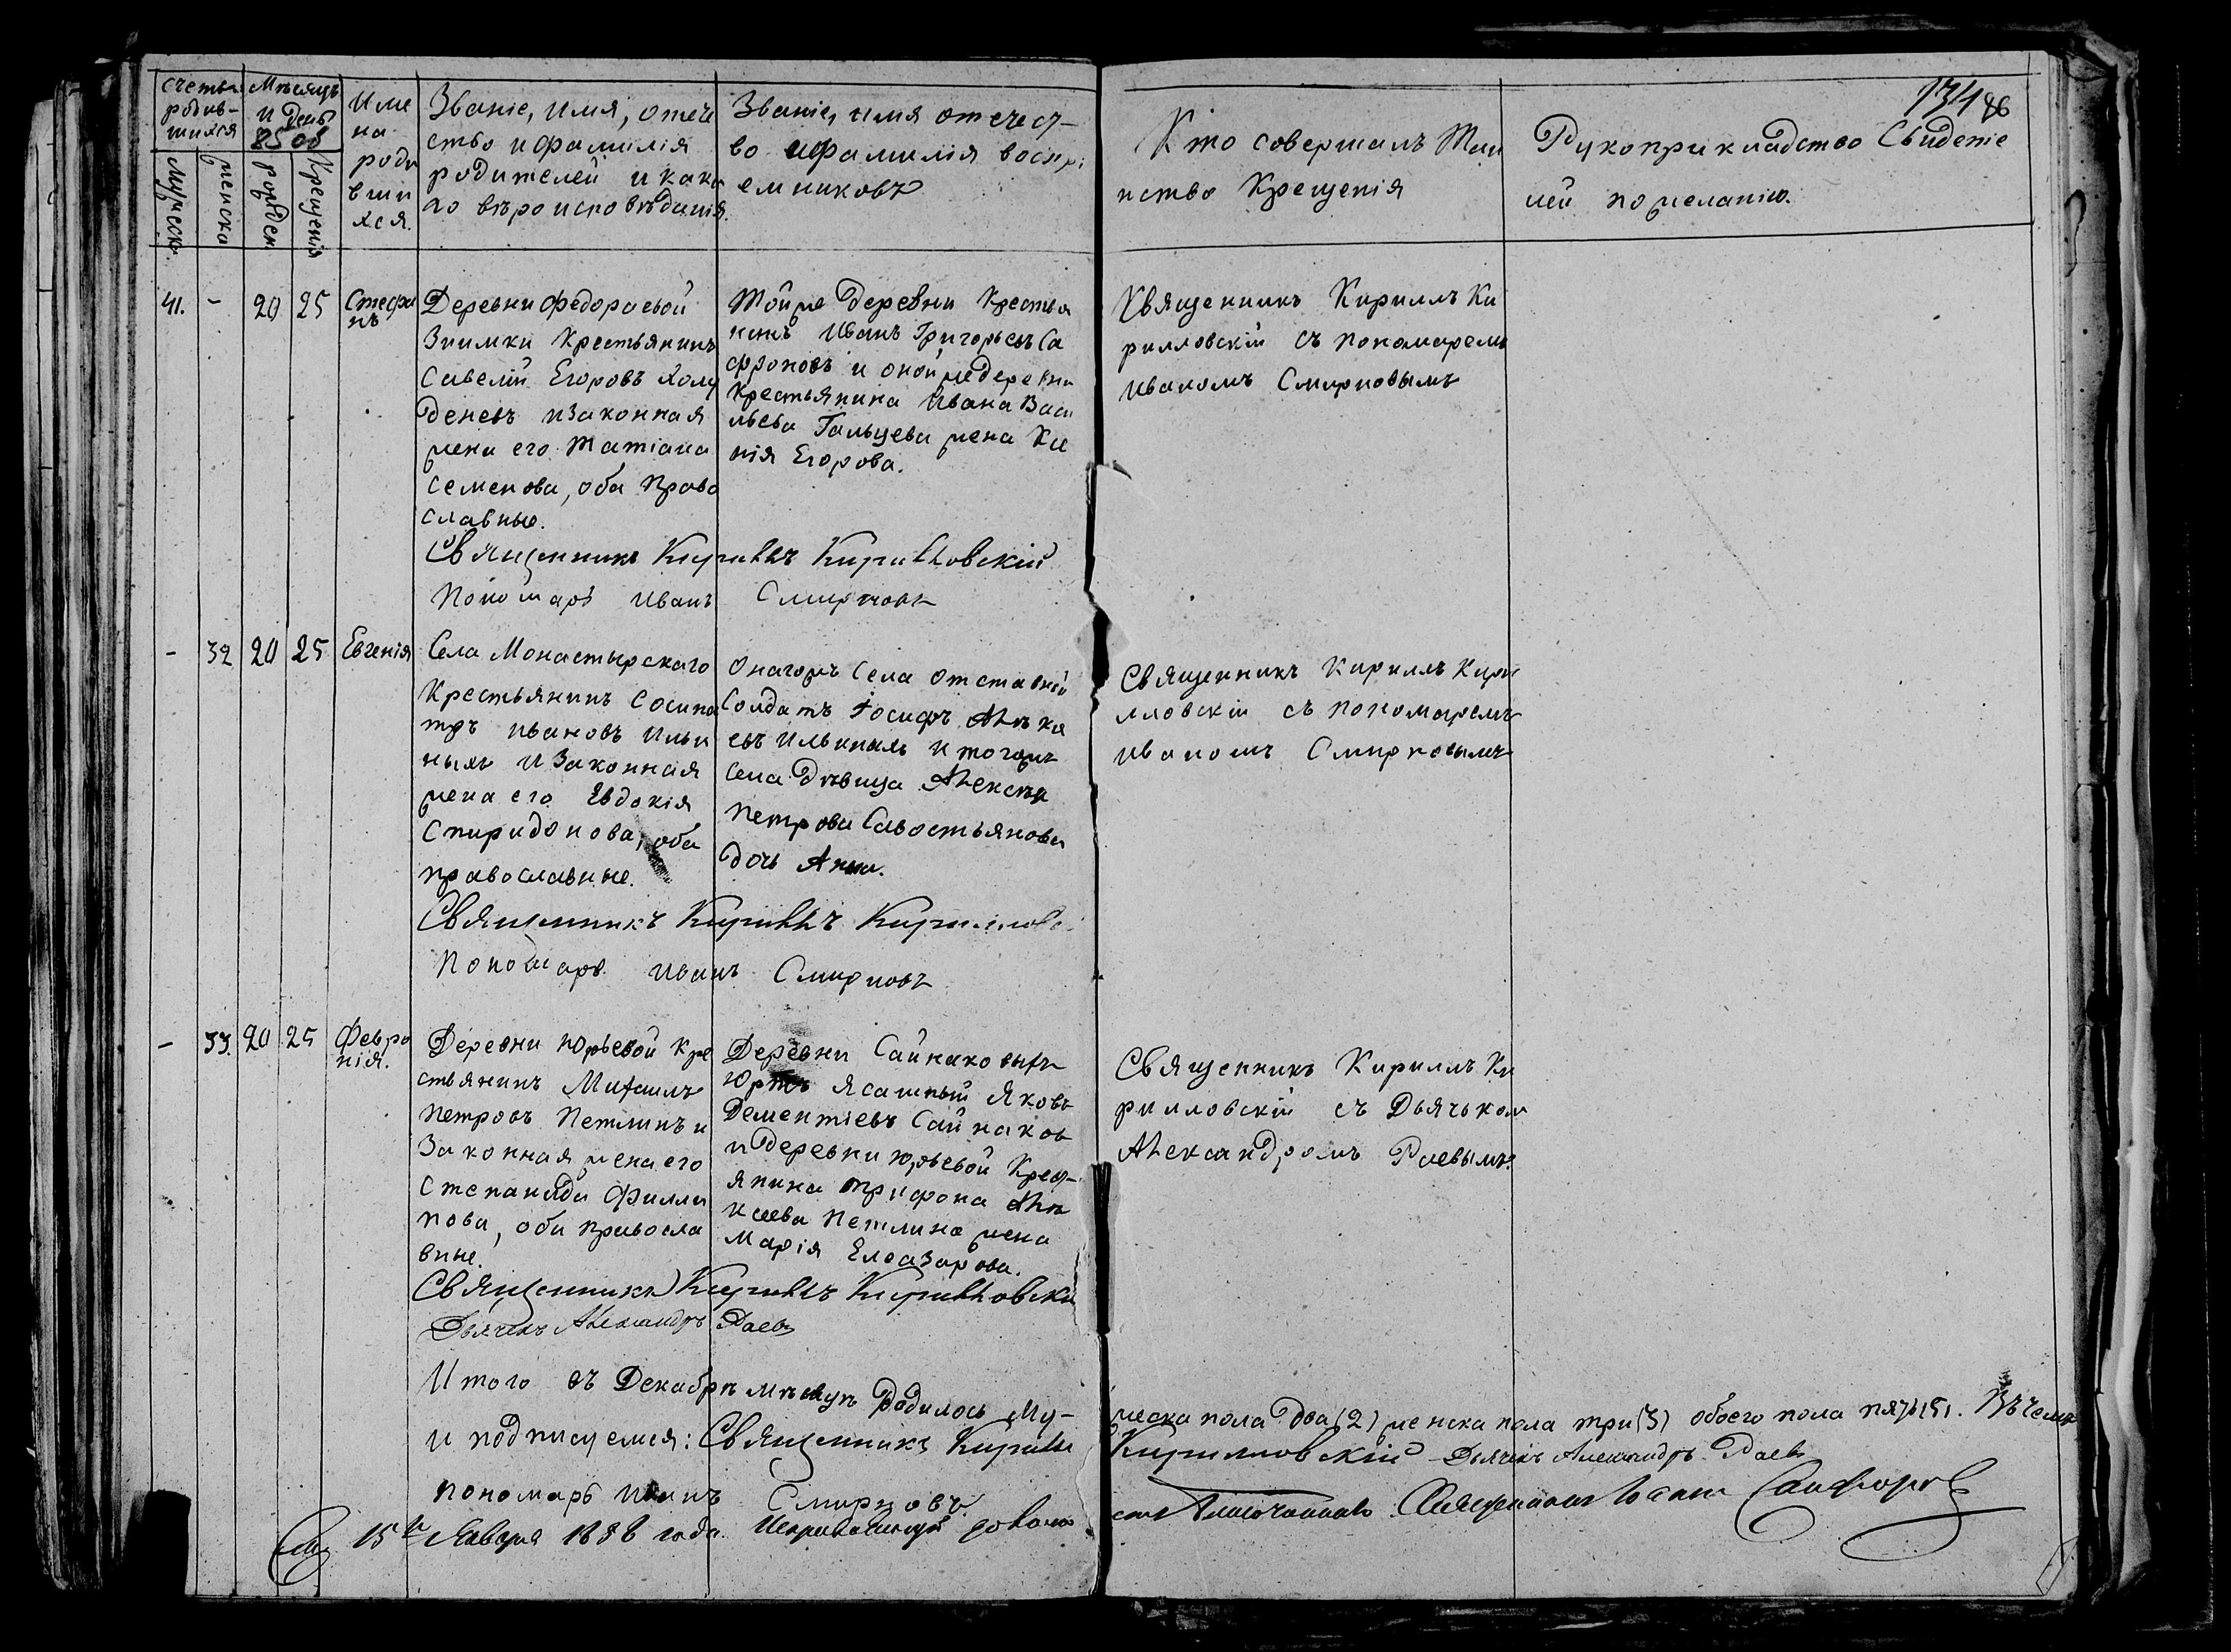 134 86
Счетъ
родив-
шихся
Мѣсяцъ
и день
8508
Име
на
роди
вши
хся.
Званіе, имя, отече
ство и фамилія
родителей и како
го вѣроисповѣданія.
Званіе, имя отечест-
во и фамилія воспрі
емниковъ
Кто совершалъ Таи
нство Крещенія
Рукоприкладство Свидете
лей по желанію.
мужск.
женска
рожден
Крещенія
41. - 20 25
Стефа
нъ
Деревни Федораевой
Зиимки Крестьянинъ
Савелій Егоровъ Холу
деневъ и законная
жена его Татіана
Семенова, оба право
славные.
Тойже деревни Крестья
нинъ Иванъ Григорьевъ Са
фроновъ и онойже деревни
крестьянина Ивана Васи
льева Гальцева жена Ксе
нія Егорова.
Священникъ Кириллъ Ки
рилловскій съ пономаремъ
Иваномъ Смирновымъ
Священникъ Кириллъ Кирилловскій
Пономарь Иванъ Смирновъ
- 32 20 25 Евгенія
Села Монастырскаго
Крестьянинъ Сосипа
тръ Ивановъ Ильи
ныхъ и Законная
жена его Евдокія
Спиридонова, оба
православные.
Онагожъ Села отставной
Солдатъ Іосифъ Алѣкѣ
евъ Ильиныхъ и тогожъ
села Дѣвица Алексѣя
Петрова Савостьянова
дочь Анна.
Священникъ Кириллъ Кири
лловскій съ пономаремъ
Иваномъ Смирновымъ
Священникъ Кириллъ Кириллов
Пономарь Иванъ Смирновъ
- 33. 20 25
Февро
нія.
Деревни Юрьевой Кре
стьянинъ Михаилъ
Петровъ Петлинъ и
Законная жена его
Степанида Филли
пова, оба правосла
вные.
Деревни Сайнаковыхъ
Юртъ Ясашный Яковъ
Дементіевъ Сайнаковъ
и деревни Юрьевой Крест-
янина Трифона Алѣ
ксеева Петлина жена
Марія Елеазарова.
Священникъ Кириллъ Ки
рилловскій съ Дьячкомъ
Александромъ Раевымъ.
Священникъ Кириллъ Кирилловскій
Дьячекъ Александръ Раевъ
Итого въ Декабрѣ мѣсяцѣ Родилось Му-
жеска пола Два (2) женска пола три (3) обоего пола пять (5). Въ чемъ
и подписуемся: Священникъ Кириллъ
Кирилловскій Дьячекъ Александръ Раевъ
пономарь Иванъ Смирновъ
15го Января 1886 года